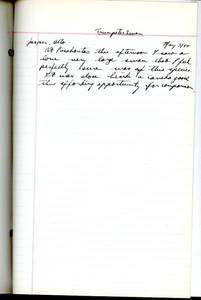 Trumpeter Swan
Jasper, Alta May 3/44
At Pocahontas this afternoon I saw a
lone very large swan that I feel
perfectly sure was of this species
It was close beside a Canada goose
thus affording opportunity for comparison